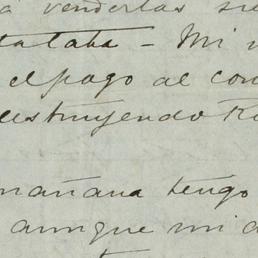 á venderlas
tataba - Mi
el pago al con
destruyendo
mañana tengo
aunque mi a